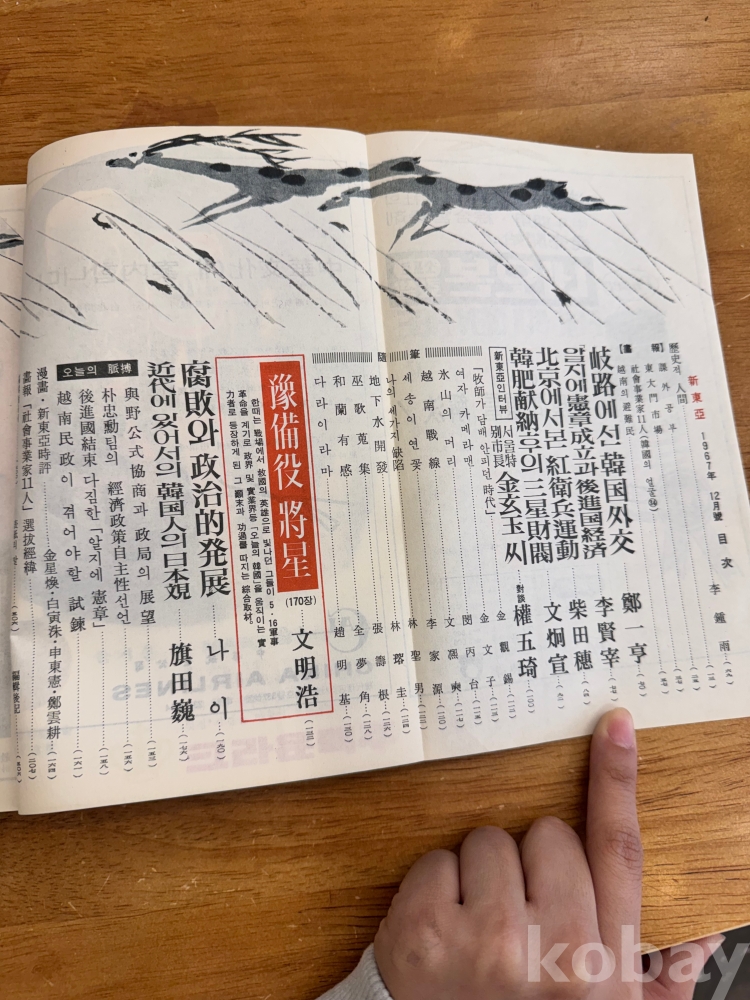 新東亞 1967年 12月號 目次
歷史的 人間 李鍾雨
課外공부
【畫報】 東大門市場
社會事業家11人〈韓國의 얼굴
越南의 避難民
岐路에 선 韓国外交 鄭一亨
「알지에憲章」成立과 後進国経済 李賢宰
北京에서본 「紅衛兵運動」 柴田穗
韓肥献納후의 三星財閥 文炯宣
新東亞인터뷰 서울特別市長 金玄玉씨 對談 權五琦
「牧師가 담배 안피던 時代」 金觀錫
여자 카메라맨 金文子
氷山의 머리 閔丙台
越南戰線
세송이 연꽃 李家源
隨筆
나의 세가지 缺陷 林聖男
地下水開發 林瑢圭
巫歌蒐集 張壽根
和蘭有感 全夢角
다라이라마 趙明基
豫備役 將星 (170장) 文明浩
한때는 戰場에서 故國의 英雄으로 빛나던 그들이 5·16軍事
革命을 계기로 政界 및 實業界등 「오늘의 韓國」을 움직이는 實
力者로 등장하게 된 그 顚末과 功過를 따지는 綜合取材。
腐敗와 政治的発展 나이
近代에 있어서의 韓国人의 日本観 旗田巍
오늘의 脈搏
與野公式協商과 政局의 展望
朴忠勳팀의 經濟政策自主性선언
後進國結束 다짐한 「알지에 憲章」
越南民政이 겪어야할 試鍊
漫畫·新東亞時評 金星煥·白寅洙·申東憲·鄭雲耕
畫報 「社會事業家11人」 選拔經緯
編輯後記
kobay